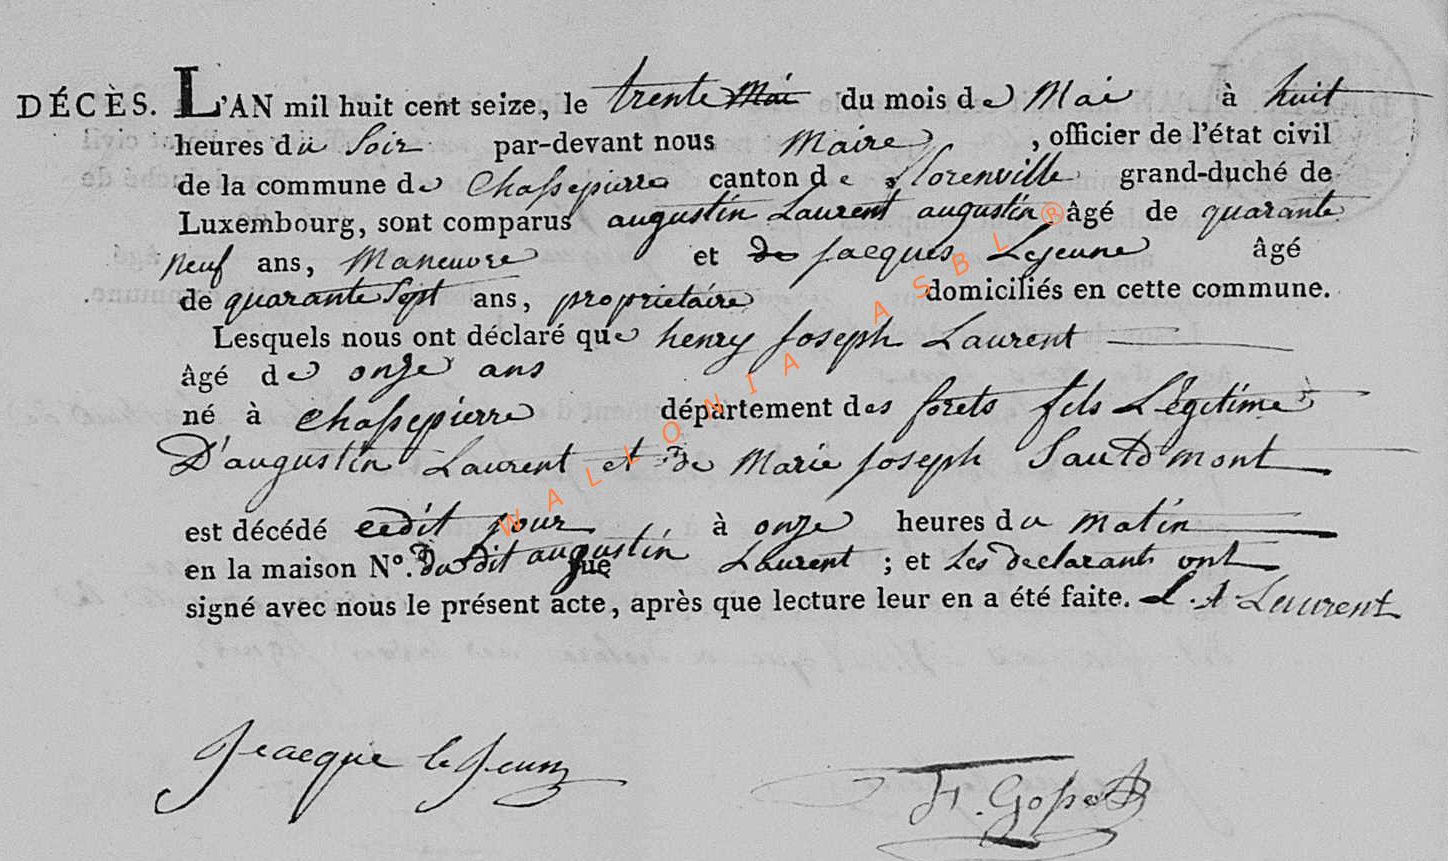 DÉCÈS. L'AN mil huit cent seize, le trente Mai du mois de Mai à huit
heures du Soir par-devant nous Maire, officier de l'état civil
de la commune de Chassepierre canton de florenville grand-duché de
Luxembourg, sont comparus augustin Laurent augustin âgé de quarante
neuf ans, Maneuvre et de jacques Lejeune âgé
de quarante Sept ans, proprietaire domiciliés en cette commune.
Lesquels nous ont déclaré que henry joseph Laurent
âgé de onze ans
né à chassepierre département des forets fils Légitime
D'augustin Laurent et de Marie joseph
est décédé cedit jour à onze heures du matin
en la maison N°. du dit augustin Laurent ; et Les declarants ont
signé avec nous le présent acte, après que lecture leur en a été faite. L. A. Laurent
Jeacque le Jeune
WALLONIA ASBL®